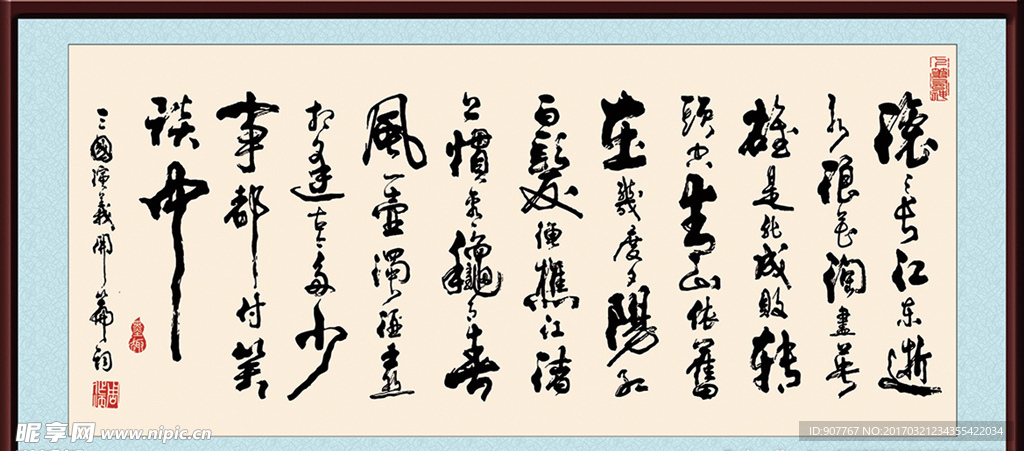 滚〻長江东逝
水浪花淘盡英
雄是非成敗转
頭空青山依舊
在幾度夕陽红
白髮渔樵江渚
上慣看龝月春
風一壺濁酒喜
相逢古今多少
事都付笑
談中
三國演義開篇詞
昵享网 www.nipic.cn
ID:907767 NO:20170321234355422034